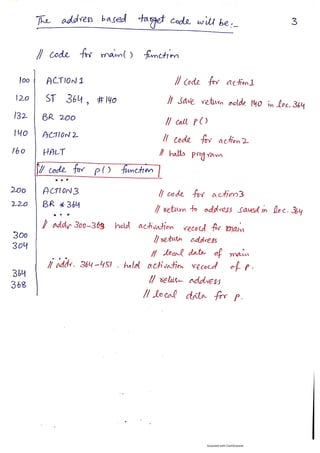 The address based target code will be:-
3
// code for main() function
100 ACTION1 // code for action1
120 ST 364, #140 // save return addr 140 in loc. 364
132 BR 200 // call P()
140 ACTION2 // code for action2
160 HALT // halts program
// code for p() function
200 ACTION3 // code for action3
220 BR *364 // return to address saved in loc. 364
...
// addr 300-363 hold activation record for main
300 // return address
304 // local data of main
...
// addr. 364-451 . hold activation record of P.
364 // return address
368 // local data for p.
Scanned with CamScanner